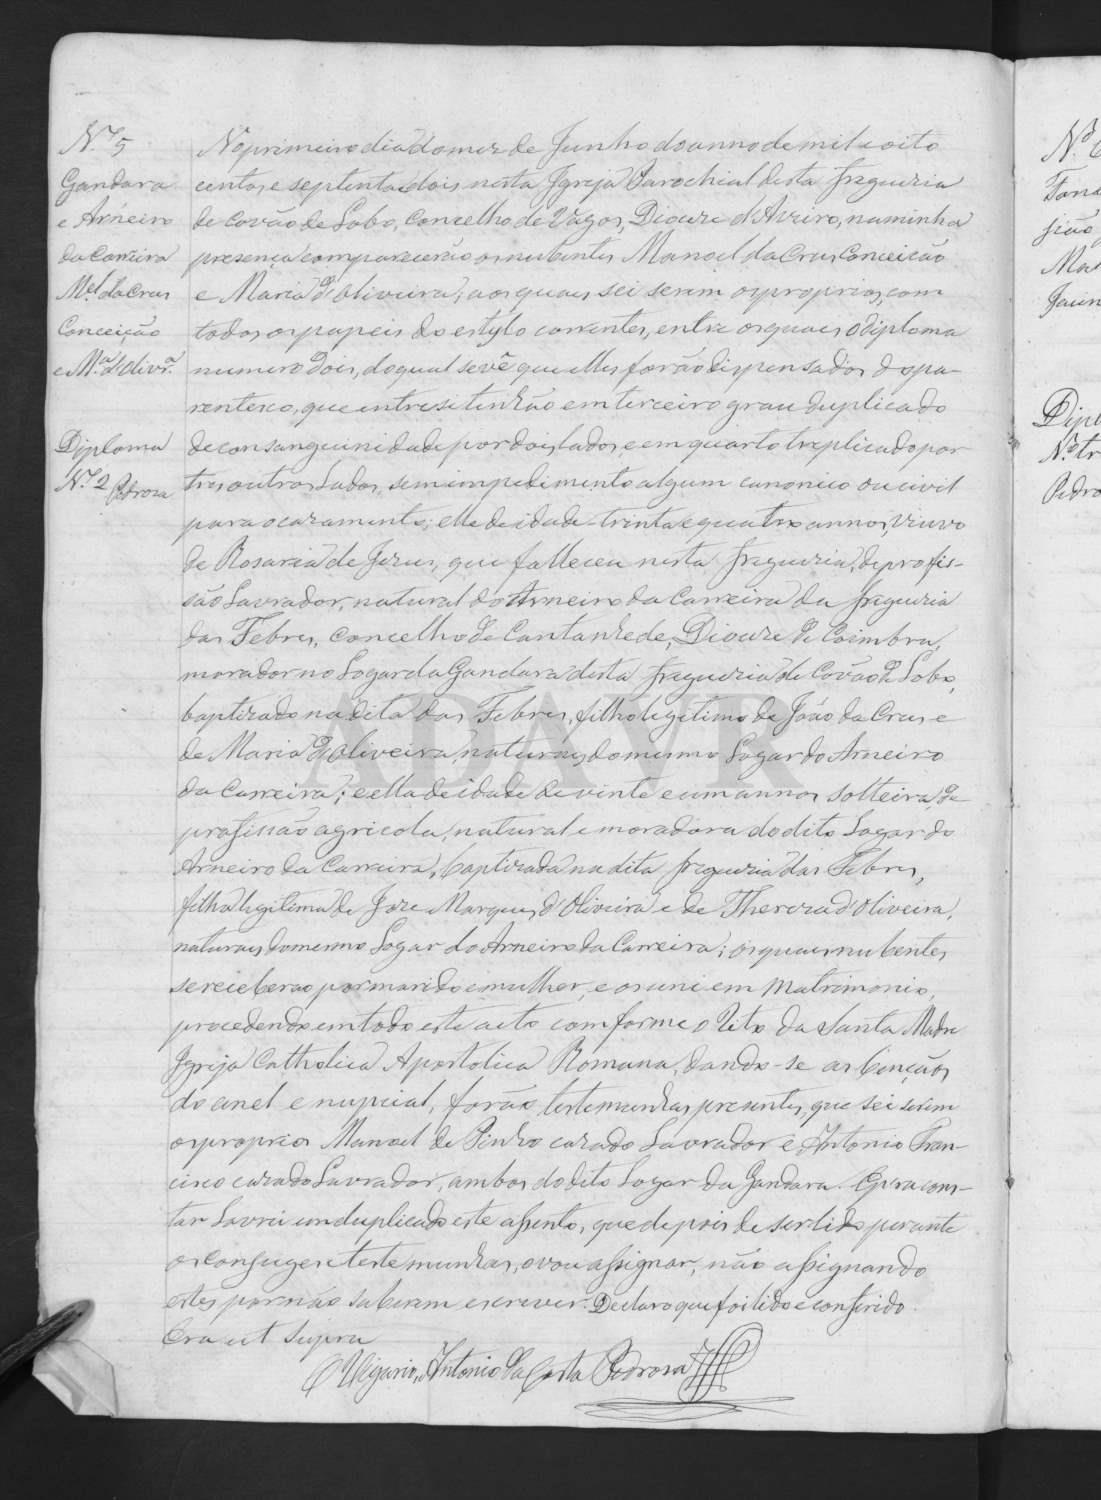 N.º 5
Gandara
e Arneiro
da Carreira
M.el da Crus
Conceição
e M.a d'Olivr.a
Diploma
N.º 2 Pedroza
No primeiro dia do mez de Junho do anno de mil e oito
centos e septenta e dois nesta Igreja Parochial desta freguezia
de Covão de Lobo, Concelho de Vagos, Diocese d'Aveiro, na minha
presença comparecerão os nubentes Manoel da Crus Conceição
e Maria de Oliveira, aos quaes sei serem os proprios, com
todos os papeis do estylo correntes, entre os quaes o diploma
numero dois, do qual se vê que elles forão dispensados do pa-
rentesco, que entre si tinhão em terceiro grau duplicado
de consanguinidade por dois lados, e em quarto treplicado por
tres outros lados, sem impedimento algum canonico ou civil
para o cazamento; elle de idade trinta e quatro annos, viuvo
de Rosaria de Jezus, que falleceu nesta freguezia, de profis-
são Lavrador, natural do Arneiro da Carreira da freguezia
das Febres, Concelho de Cantanhede, Diocese de Coimbra,
morador no Logar da Gandara desta freguezia de Covão de Lobo,
baptizado na dita das Febres, filho legitimo de João da Crus e
de Maria de Oliveira, naturaes do mesmo Logar do Arneiro
da Carreira; e ella de idade de vinte e um annos solteira, de
profissão agricola, natural e moradora do dito Logar do
Arneiro da Carreira, baptizada na dita freguezia das Febres,
filha legitima de Joze Marques d'Oliveira e de Thereza d'Oliveira,
naturaes do mesmo Logar do Arneiro da Carreira; os quaes nubentes
se receberão por marido e mulher, e os uni em Matrimonio,
procedendo em todo este acto comforme o Rito da Santa Madre
Igreja Catholica Apostolica Romana, dando-se as bençãos
do anel e nupcial, forão testemunhas presentes, que sei serem
os proprios Manoel de Pinho cazado Lavrador e Antonio Fran-
cisco cazado Lavrador, ambos do dito Logar da Gandara. E p.ra cons-
tar Lavrei em duplicado este assento, que depois de ser lido perante
os Conjuges e testemunhas, o vou assignar, não assignando
estes por não saberem escrever. Declaro que foi lido e conferido.
Era ut supra
O Vigario, Antonio da Costa Pedroza
ADAVR
Diploma
N.º tr
Pedro